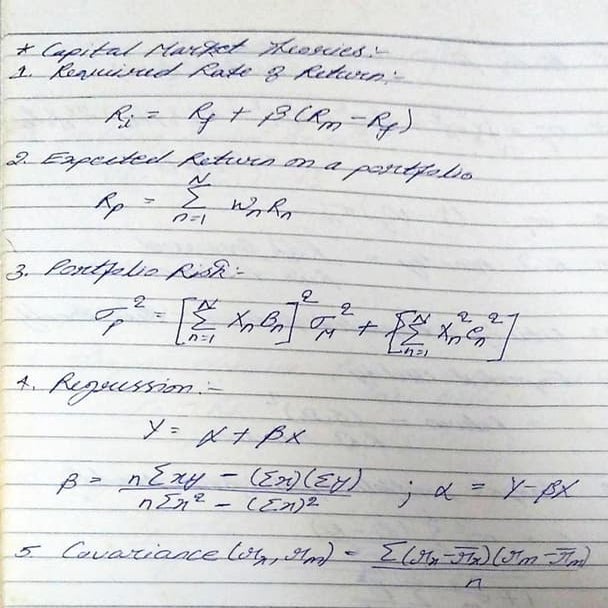 * Capital Market Theories:-
1. Required Rate of Return:-
Ri = Rf + β(Rm - Rf)
2. Expected Return on a portfolio
Rp = Σ_{n=1}^{N} wn Rn
3. Portfolio Risk:-
σp² = [Σ_{n=1}^{N} Xn Bn]² σM² + [Σ_{n=1}^{N} Xn² en²]
4. Regression:-
Y = α + βX
β = (nΣxy - (Σx)(Σy)) / (nΣx² - (Σx)²) ; α = Y - βX
5. Covariance (rx, rm) = Σ(rx - r̅x)(rm - r̅m) / n